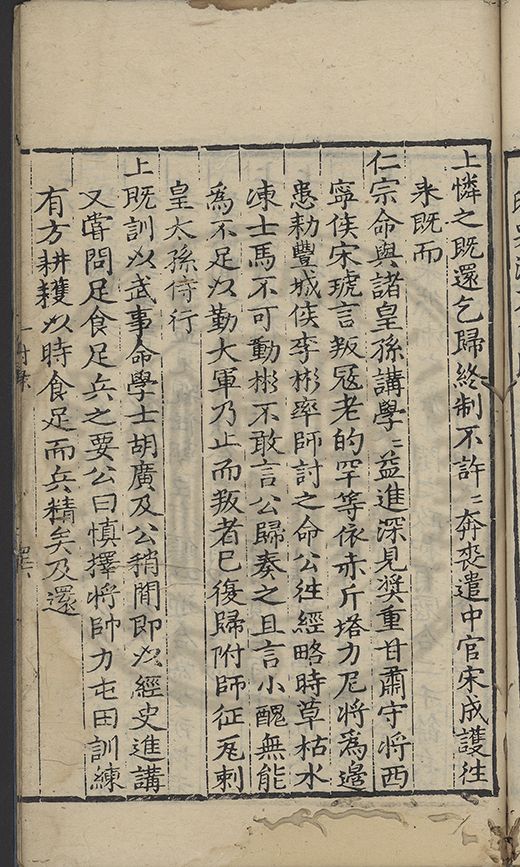 上憐之既還乞歸終制不許〻奔䘮遣中官宋成護往
来既而
仁宗命與諸皇孫講學〻益進深見奨重甘肅守将西
寧侯宋琥言叛冦老的罕等依赤斤塔力尼将為邉
患勑豐城侯李彬率師討之命公往經略時草枯水
凍士馬不可動彬不敢言公歸奏之且言小醜無能
為不足以勤大軍乃止而叛者已復歸附師征瓦剌
皇太孫侍行
上既訓以武事命學士胡廣及公稍間即以經史進講
又嘗問足食足兵之要公曰慎擇将帥力屯田訓練
有方耕耨以時食足而兵精矣及還